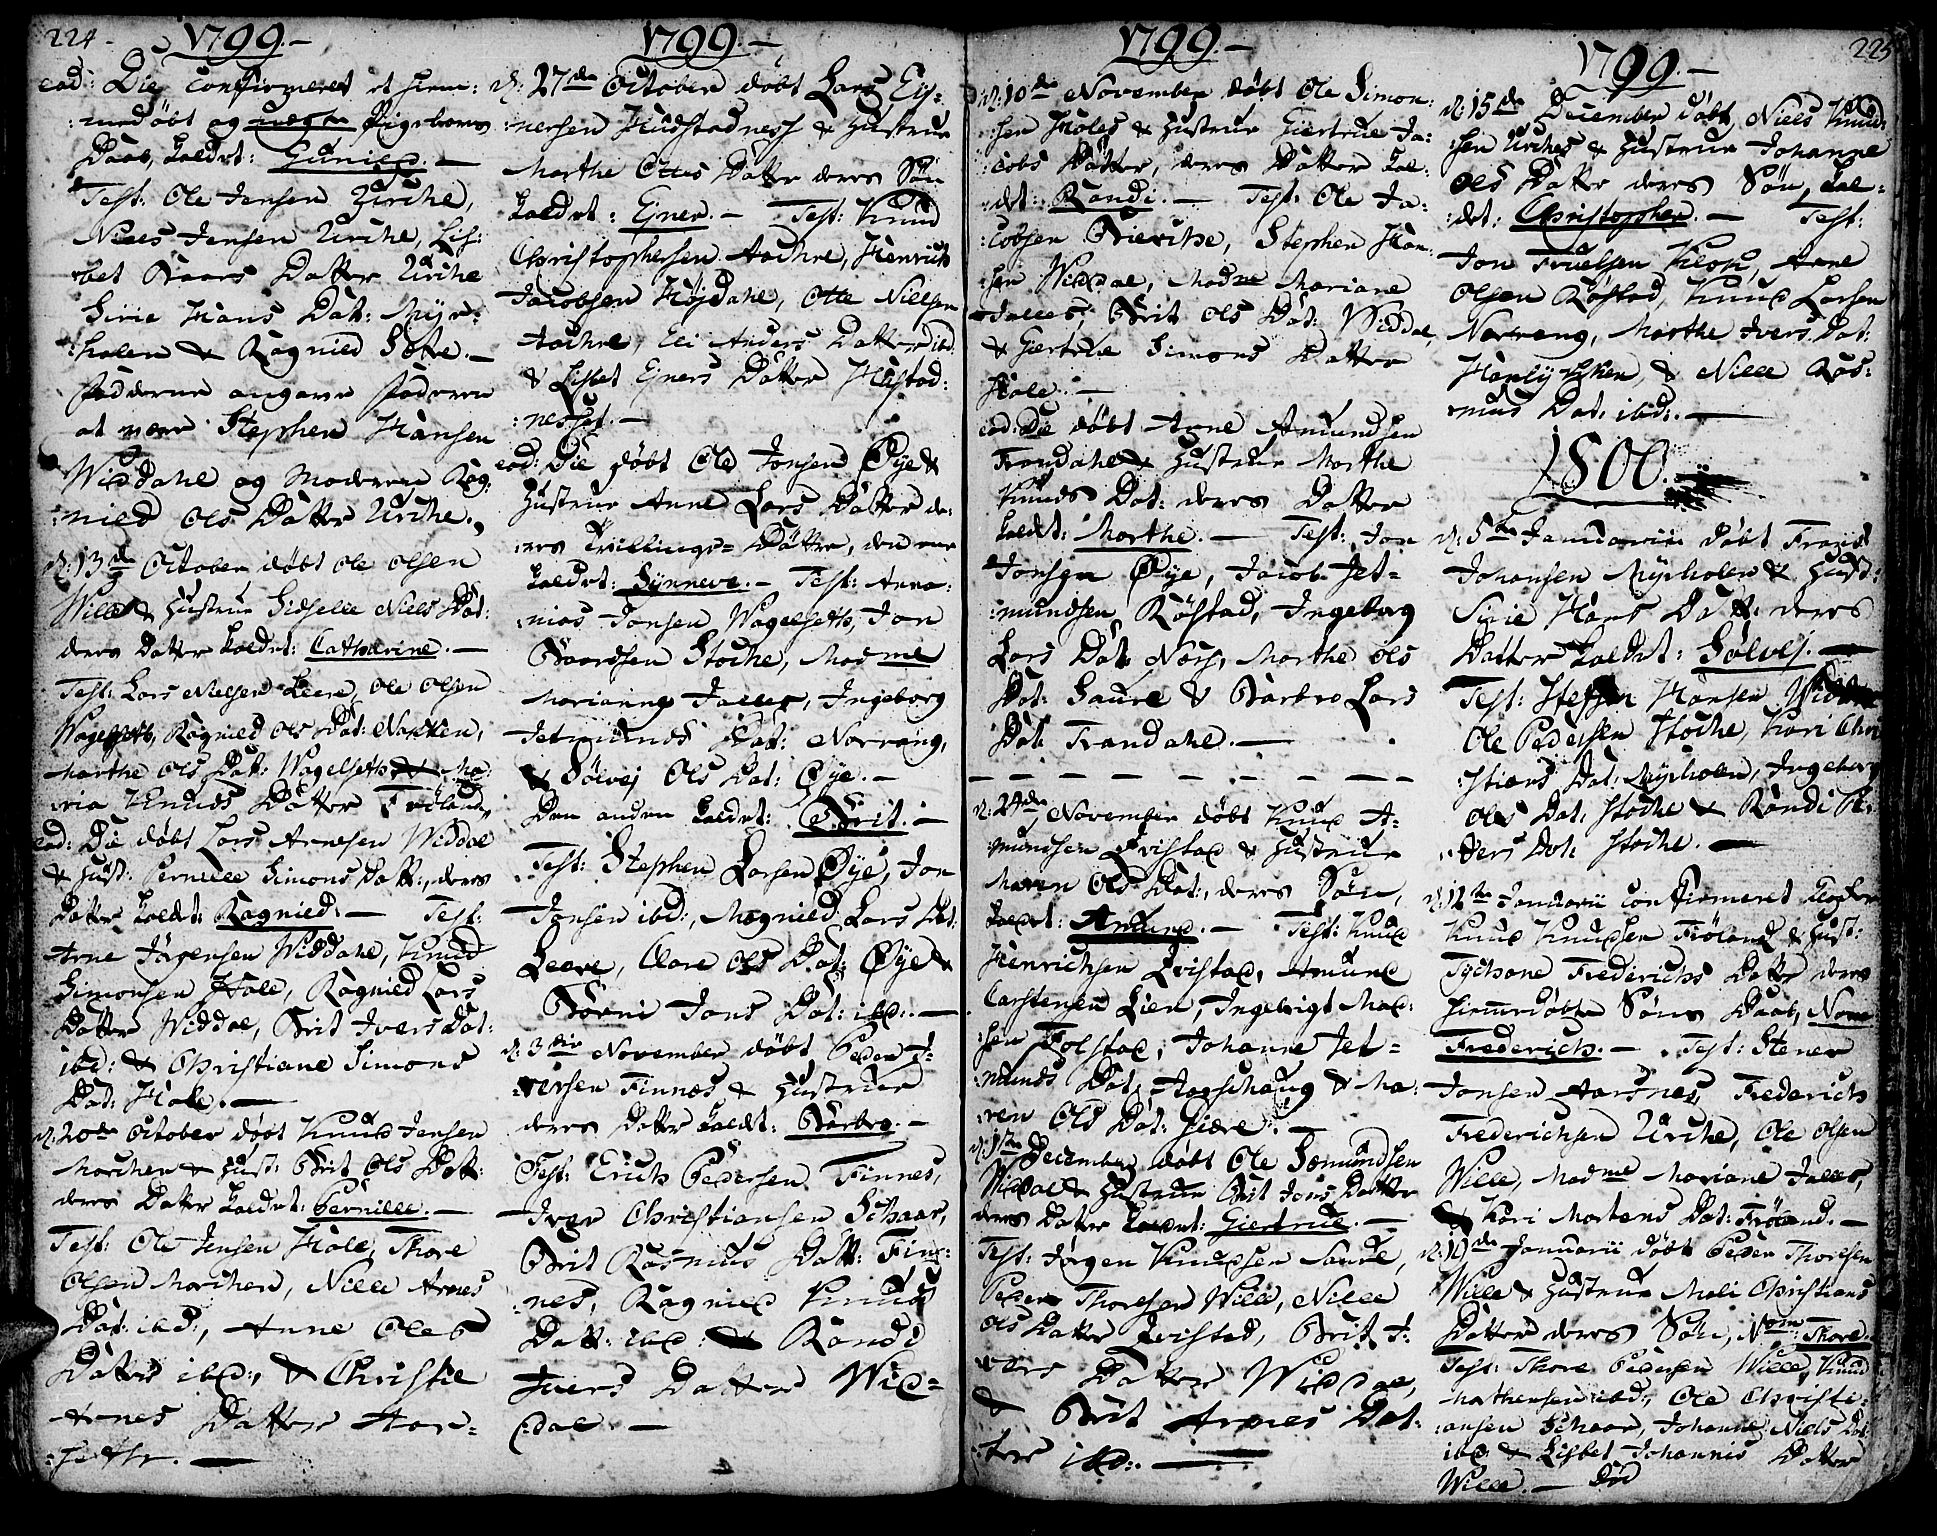 224.
1799.
eod: Die Confirmeret et hiem-
:medøbt og uægte Pigebarns
Daab, kaldet: Gunild.
Test: Ole Jensen Urche,
Niels Jensen Urche, Lis:
:bet Baars Datter Urche
Sirie Hans Dat: Myr:
:holen & Ragnild Sætre.
Fadderne angave Faderen
at være Stephen Hansen
Widdahl og Moderen Rag:
:nild Ols Datter Urche.
d: 13de October døbt Ole Olsen
Wille & Hustrue Sidselle Niels Dat:
deres Datter kaldet: Catharine.
Test: Lars Nielsen Leere, Ole Olsen
Wagseth, Ragnild Ols Dat: Nakken,
Marthe Ols Dat: Wagelseth & Ma:
:ria Knuds Datter Frøland,
eod: Die døbt Lars Arnesen Widdal
& Hust: Pernille Simons Datt:, deres
Datter kaldet: Ragnild. Test:
Arne Jørgensen Widdahl, Knud
Simonsen Hole, Ragnild Lars
Datter Widdal, Brit Ivers Dat:
ibd: & Christiane Simons
Dat: Hole.
d: 20de October døbt Knud Jensen
Mochen & Hust: Brit Ols Datt:
deres Datter kaldet: Pernille.
Test: Ole Jensen Hole, Thore
Olsen Mochen, Nille Arnes
Dat: ibd:, Anne Oles
Datter ibd:, & Christie
Arnes Datter Aar-
:sethr.
1799.
d: 27de October døbt Lars Ey:
:nersen Hudstadness & Hustrue
Marthe Ottes Datter deres Søn
kaldet: Ejner. Test: Knud
Christophersen Aachre, Henrich
Jacobsen Højdahl, Otte Nielsen
Aachre, Eli Anders Datter ibd:
& Lisbet Ejners Datter Hustad:
:nesset.
eod: Die døbt Ole Jonsen Øye &
Hustrue Anne Lars Datter de:
:res Tvillings-Døttre, den ene
kaldet: Synneve. Test: Anna:
:nias Jonsen Wagelseth, Jon
Baardsen Stoche, Madme
Marianne Jalles, Ingeborg
Jetmunds Dat: Norrang,
& Sølvej Ols Dat: Øye.
Den anden kaldet: Brit.
Test: Stephen Larsen Øye, Jon
Jonsen ibd:, Magnild Lars Dat:
Leere, Clare Ols Dat: Øye &
Børni Jons Dat: ibd:.
d: 3die November døbt Peder I:
:versen Finnes & Hustrue
deres Datter kaldet: Barbro.
Test: Erich Pedersen Finnes,
Iver Christiansen Schaar,
Brit Rasmus Datt: Fin:
:nes, Ragnild Knuds
Datt: ibd: & Randi
Ivers Datter Wid-
:dal.
1799.
d: 10de November døbt Ole Simon:
:sen Holes & Hustrue Giertrue Ja:
:cobs Datter, deres Datter kal:
:det: Randi. Test: Ole Ja:
:cobsen Bierche, Stephen Han:
:sen Widdal, Madme Mariane
Jalles, Brit Ols Dat: Widdal
& Giertrue Simons Datter
Hole.
eod: Die døbt Arne Amundsen
Trandahl & Hustrue Marthe
Knuds Dat: deres Datter
kaldet: Marthe. Test: Jon
Jonsen Øye, Jacob Jet-
:mundsen Røstad, Ingeborg
Lars Dat: Nors, Marthe Ols
Dat: Saure & Barbro Lars
Dat: Trandahl.
d: 24de November døbt Knud A:
:mundsen Qvistad & Hustrue
Maren Ols Dat:, deres Søn,
kaldet: Amund. Test: Knud
Henrichsen Qvistad, Amund
Carstensen Lien, Ingebrigt Mad:
:sen Folstad, Johanne Jet-
:munds Dat: Aagschaug & Ma:
:ren Ols Dat: Giære.
d: 1ste December døbt Ole Somundsen
Widdal & Hustrue Brit Jons Datter
deres Datter kaldet: Giertrue.
Test: Jørgen Knudsen Saure,
Peder Thoresen Wille, Nille
Ols Datter Qvistad, Brit I:
:vers Datter Widdal,
& Brit Arnes Dat:
:ter ibd:.
225
1799.
d: 15de December døbt Niels Knud:
:sen Urches & Hustrue Johanne
Ols Datter deres Søn, kal-
:det: Christopher. Test:
Jon Truelsen Klok, Arne
Olsen Røstad, Knud Larsen
Norreng, Marthe Ivers Dat:
& Nille Ras:
:mus Dat: ibd:.
1800.
d: 5te Januarii døbt Frands
Johansen Myrholen & Hust:
Sirie Hans Datt: deres
Datter kaldet: Sølvej.
Test: Steffen Hansen
Ole Pedersen Stoche, Kari Chri
:stians Dat: Myrholen, Ingeborg
Ols Dat: Stoche & Randi Pe:
:ders Dat: Stoche.
d: 12te Januarii Confirmeret Klocker
Knud Knudsen Frøland & Hust:
Tychane Frederichs Datter deres
hiemmedøbte Søns Daab, Nom
Frederich. Test: Stener
Jonsen Aarsnes, Frederich
Frederichsen Urche, Ole Olsen
Wille, Madme Mariane Jalles,
& Kari Mortens Dat: Frøland.
d: 19de Januarii døbt Peder Thoresen
Wille & Hustrue Mali Christians
Datter deres Søn, Nom: Thore.
Test: Thore Pedersen Wille, Knud
Mathensen ibd:, Ole Christi-
:ansen Schaar, Johanne Niels Dat:
ibd: & Lisbet Johannis Datter
Wille. Død